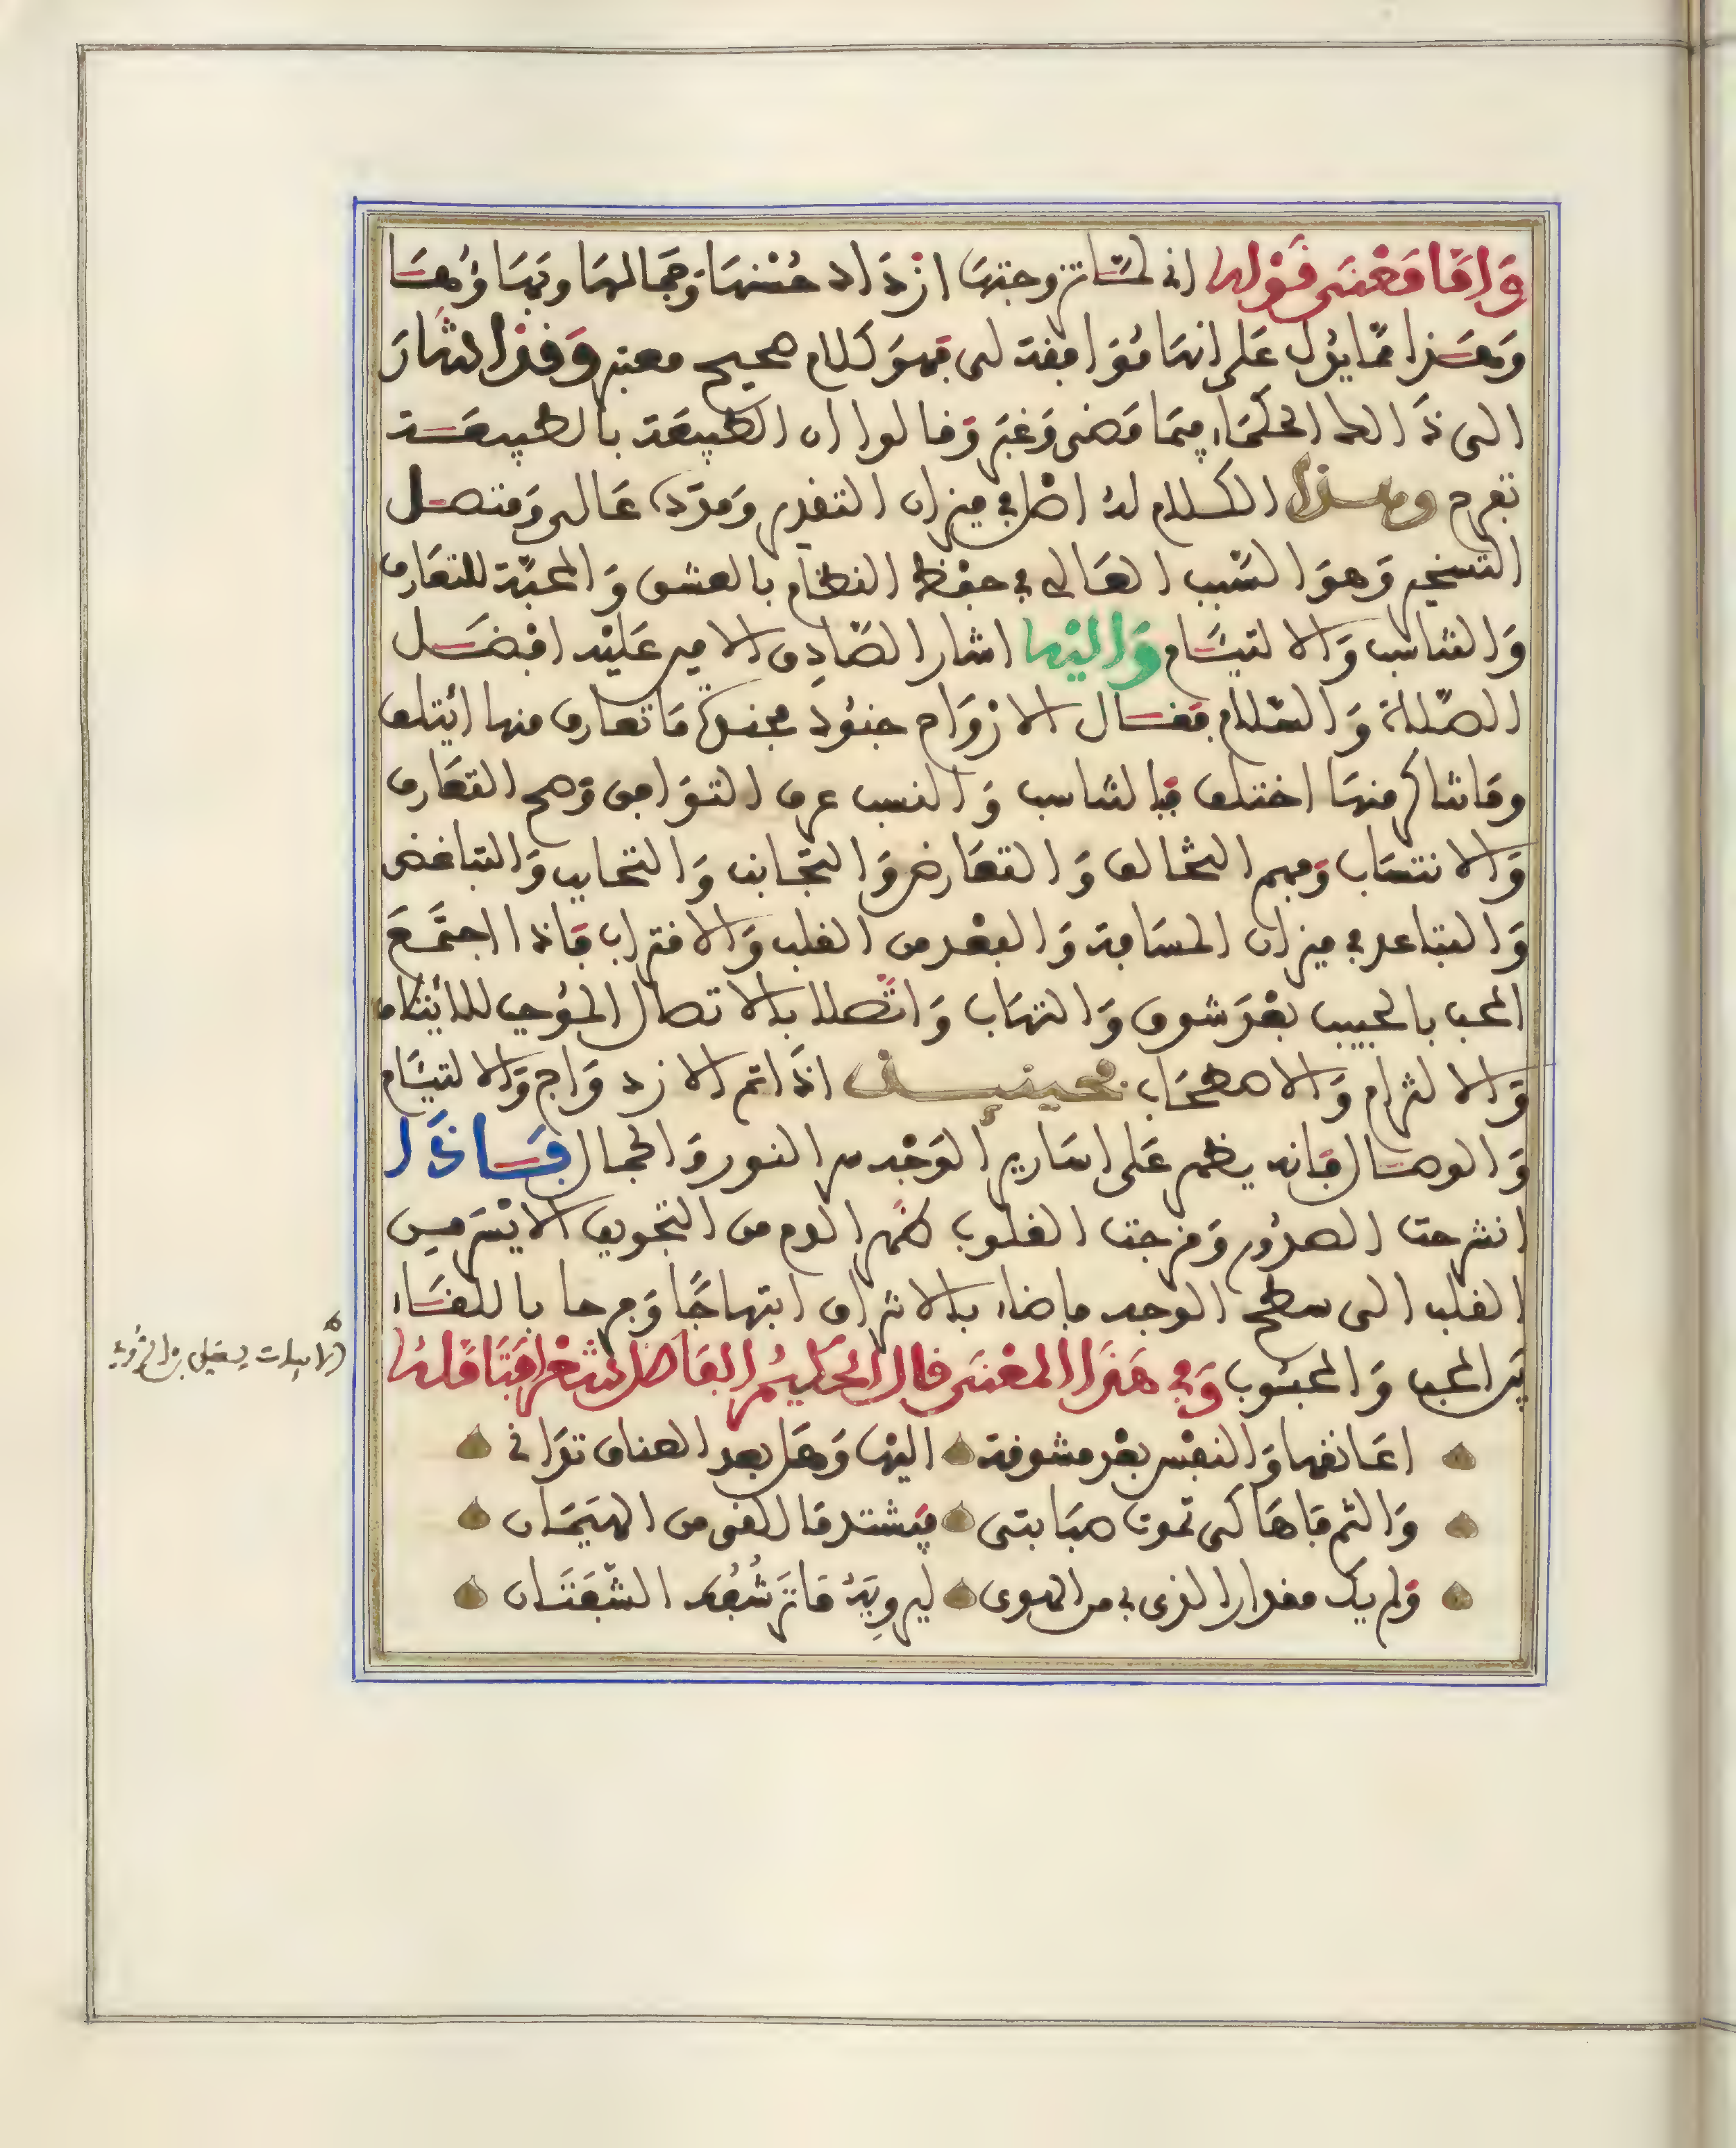 وَامَّا مَعْنَى قَوْلِهَا انى لمّا تزوجتها ازدَاد حُسْنهَا وَجَمَالهَا وبَهَاؤُهَا
وَهَذا ممّا يدُل عَلى انهَا مُوَافِقة لى فهوَ كلام صحيح معتبر وَقد اشَارَ
الى ذَالك الحكمَاء فيمَا مَضى وَغبَر وَقالوا ان الطبيعَة بالطبيعَة
تفرح وهذا الكلام لهُ اصْل في ميزان التقدير وَمدَد عَالى وَمتصل
التسخير وَهوَ السّبب العَالى في حفْظ النظام بالعشق وَالمحبّة للتعَارف
وَالتناسب وَالالتيَام وَاليْهَا اشار الصّادِق الامير عَليْه افضَل
الصّلاة وَالسّلام فقال الارْوَاح جنُود مجندة مَا تعارف منها ائتلف
ومَا تناكر منهَا اختلف فبالتناسب وَالنسب عرف التوَافق وَصح التعَارف
وَالانتسَاب وَفهم التخالف وَالتعَارض وَالتجَانب وَالتحابب وَالتباغض
وَالتباعد في ميزان المسَافة وَالبعْد من القلب وَالاقتراب فاذا اجتمَعَ
المحب بالحبيب بعْدَ شوق وَالتهَاب وَاتّصلا بالاتصال المؤجب للائتام
وَالالتزام وَالاصحَاب فحينيذ اذَا تم الازدوَاج وَالالتيَام
وَالوصَال فانه يظهر عَلى اسَارير الوَجْه من النور وَالجمال فَاذَا
انشرحت الصدُور وَفرحت القلوب ظهر الدم من التجويف الايْسَر من
القلب الى سطح الوجه فاضاء بالاشراق ابتهاجًا وَفرحا باللقَاء
بَين المحب وَالمحبُوب وَفي هَذَا المعْنَى قال الحكيمُ الفَاضل شعْرا
اعَانقهَا وَالنفْس بعْد مشوقة اليْهَا وَهَل بعد العناق تدَانى
وَالثم فاهَا كى تموت صبَابتى فيَشتد مَا القى من الهيَمَان
وَلم يك مقدار الذى بى من الهوى ليرويَهُ مَا ترشُفُ الشّفتَان